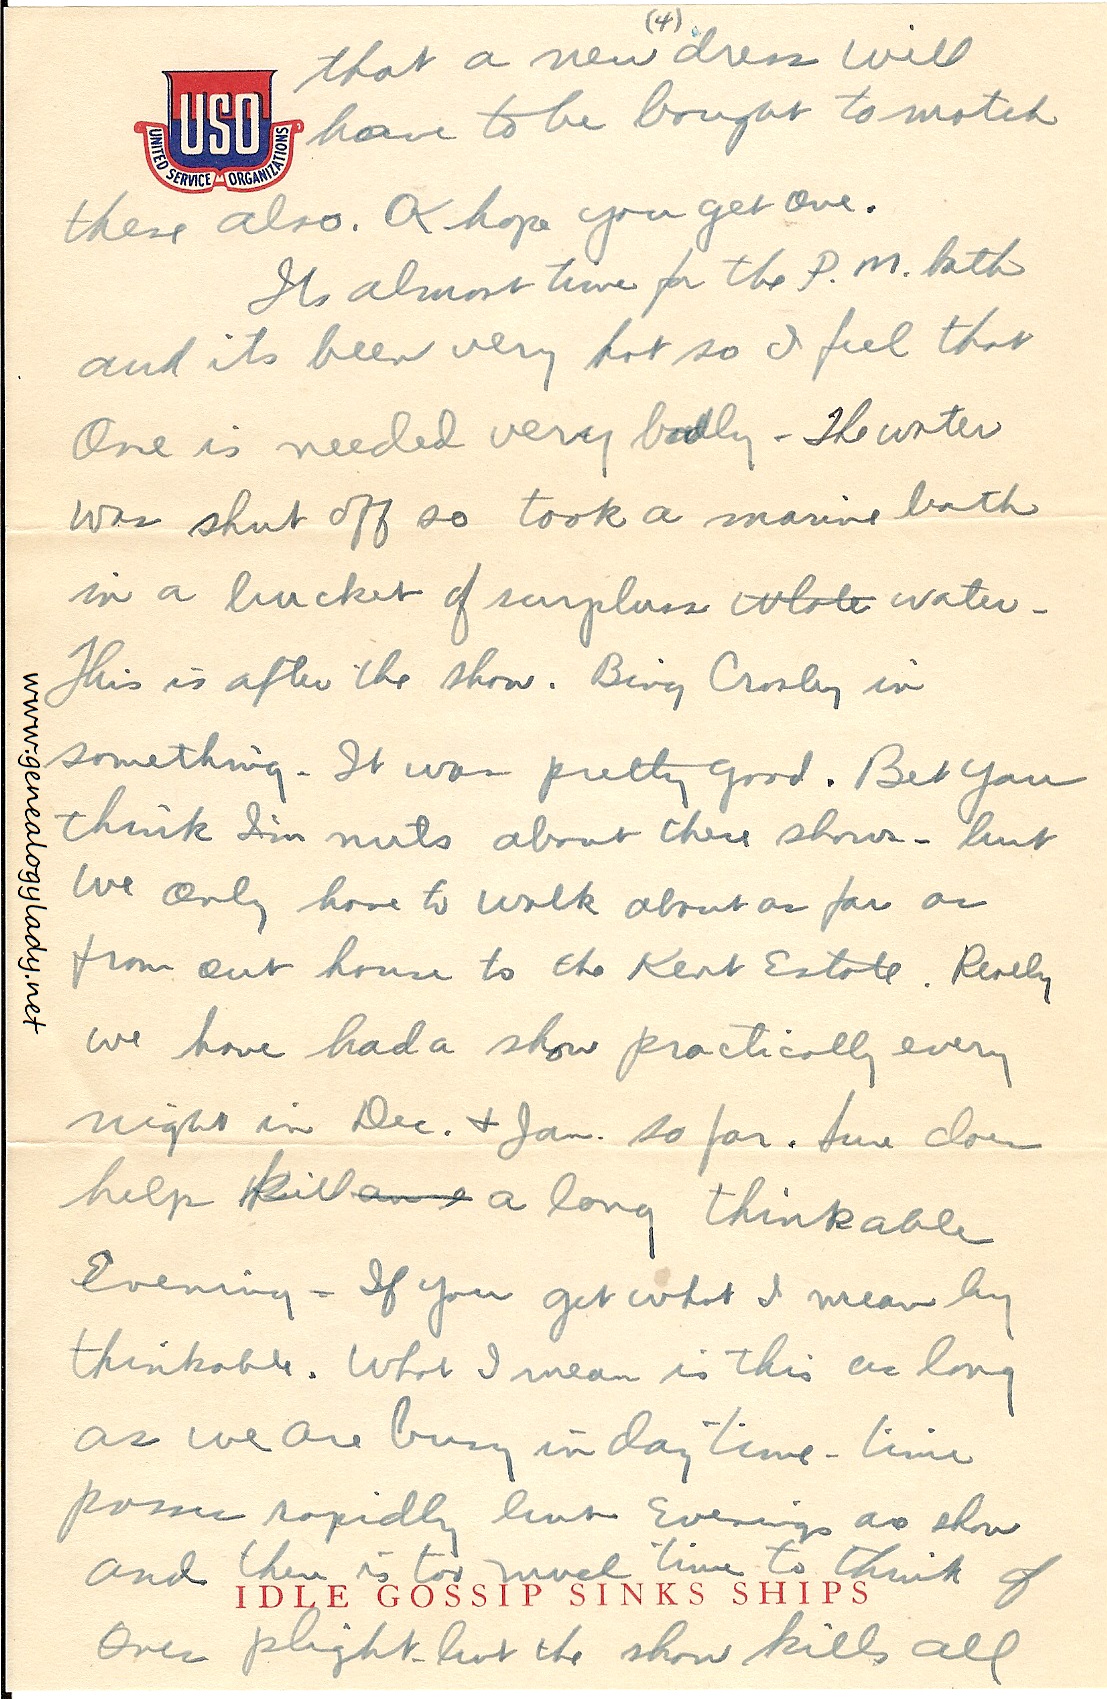 (4)
that a new dress will
USO
UNITED SERVICE ORGANIZATIONS
have to be bought to match
these also. OK hope you get one.
Its almost time for the P.M. bath
and its been very hot so I feel that
One is needed very badly - The water
was shut off so took a marine bath
in a bucket of surpluss water -
This is after the show. Bing Crosby in
something - It was pretty good. Bet you
think I'm nuts about these shows - but
we only have to walk about as far as
from our house to the Kent Estate. Really
we have had a show practically every
night in Dec. + Jan. so far. Sure does
help kill a long thinkable
Evening - If you get what I mean by
thinkable. What I mean is this as long
as we are busy in daytime - time
passes rapidly but Evenings no show
and there is too much time to think of
IDLE GOSSIP SINKS SHIPS
Ones plight - but the show kills all
www.genealogylady.net